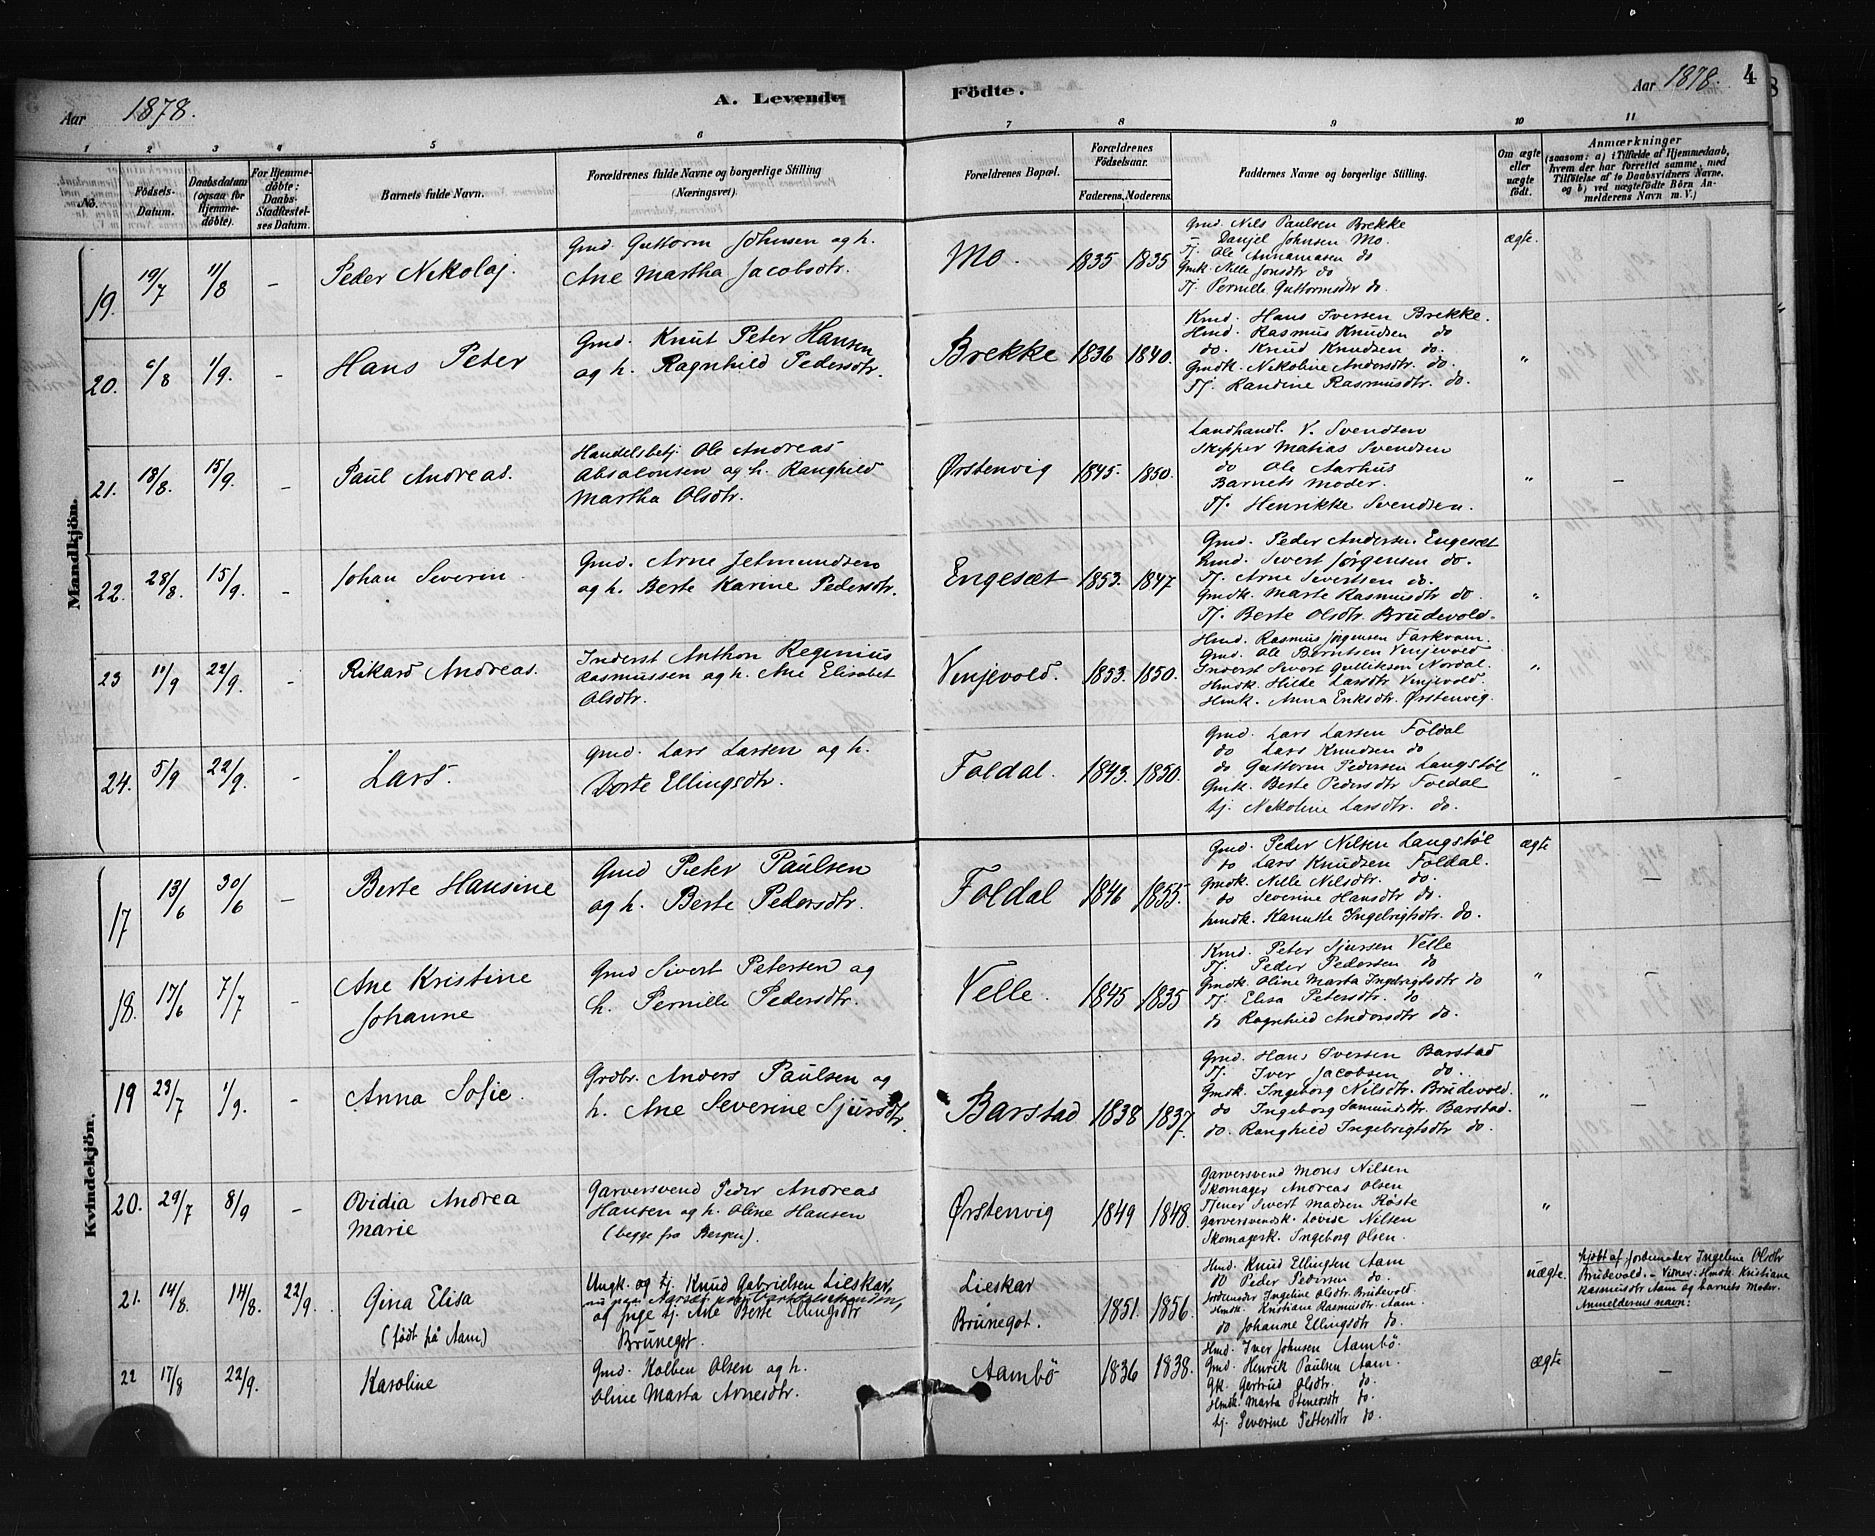 Aar 1878. A. Levende Födte. Aar 1878. 4
1 2 3 4 5 6 7 8 9 10 11
No. Födsels-Datum. Daabsdatum (ogsaa for Hjemmedöbte). For Hjemmedöbte: Daabs-Stadfæstelses Datum. Barnets fulde Navn. Forældrenes fulde Navne og borgerlige Stilling (Næringsvei). Forældrenes Bopæl. Forældrenes Födselsaar. Faderens. Moderens. Faddernes Navne og borgerlige Stilling. Om ægte eller uægte födt. Anmærkninger (saasom: a) i Tilfælde af Hjemmedaab, hvem der har forrettet samme, med Tilföielse af to Daabsvidners Navne, og b) ved uægtefödte Börn Anmelderens Navn m. V.)
Mandkjön.
19. 19/7 11/8 - Peder Nikolaj.
Gmd. Guttorm Johnsen og h.
Ane Martha Jacobsdtr.
Mo. 1835 1835
Gmd. Nils Paulsen Brekke
Danjel Johnsen Mo.
Tj. Ole Annanasen do
Gmk. Nelle Jonsdtr do
Tj. Pernille Guttormsdtr do.
ægte.
20. 6/8 1/9. - Hans Peter
Gmd. Knut Peter Hansen
og h. Ragnhild Pedersdtr.
Brekke 1836 1840.
Kmd. Hans Iversen Brekke.
Hmd. Rasmus Knudsen do
do. Knud Knudsen do.
Gmdk. Nikoline Andersdtr. do.
Tj. Randine Rasmusdtr. do.
"
21. 18/8. 15/9. - Paul Andreas.
Handelsbetj. Ole Andreas
Absalonsen og h. Ranghild
Martha Olsdtr.
Ørstenvig 1845. 1850.
Landhandl. V. Svendsen
Skipper Matias Svendsen
do Ole Aarhus
Barnets Moder.
Tj. Henrikke Svendsen.
" -
22. 28/8. 15/9. - Johan Severin.
Gmd. Arne Jetmundsen
og h. Berte Karine Pedersdtr.
Engesæt 1853. 1847
Gmd. Peder Andersn. Engesæt
Gmd. Severt Jørgensen do.
Tj. Arne Sivertsen do.
Gmdk. Marte Rasmusdtr do.
Tj. Berte Olsdtr. Brudevold.
"
23 11/9 22/9. - Rikard Andreas.
Inderst Anthon Regenius
Rasmussen og h. Ane Elisabet
Olsdtr.
Vinjevold. 1853. 1850.
Hmd. Rasmus Jørgensen Farkvam.
Gmd. Ole Berntsen Vinjevold
Inderst Sivert Gulliksen Nordal.
Hmdk. Hilde Larsdtr Vinjevold.
Hmk. Anna Eriksdtr. Ørstenvig.
"
24. 5/9 22/9. - Lars.
Gmd. Lars Larsen og h.
Dorte Ellingsdtr.
Foldal. 1843. 1850.
Gmd. Lars Larsen Foldal
do Lars Knudsen do
do Guttorm Pedersen Langstöl
Gmk. Berte Pedersdtr Foldal
tj. Nikoline Larsdtr. do.
" -
Kvindekjön.
17 13/6 30/6 - Berte Hansine
Gmd Peter Paulsen
og h. Berte Pedersdtr.
Foldal 1846 1855.
Gmd. Peder Nilsen Langstöl
do Lars Knudsen Foldal.
Gmdk. Nelle Nilsdtr. do.
do Severine Hansdtr do.
hmdk. Kanutte Ingebrigtsdtr. do.
ægte -
18. 17/6 7/7 - Ane Kristine
Johanne
Gmd Sivert Petersen og
h. Pernille Pedersdtr.
Velle. 1845. 1835
Kmd. Peter Sjursen Velle
Tj. Peder Pedersen do
Gmdk. Oline Marta Ingebrigtsdtr do
Tj. Elisa Petersdtr. do
do Ragnhild Andersdtr do.
" -
19 23/7 1/9. - Anna Sofie.
Grdbr. Anders Paulsen og
h. Ane Severine Sjursdtr.
Barstad 1838 1837.
Gmd. Hans Iversen Barstad
Tj. Iver Jacobsen do.
Gmdk. Ingeborg Nilsdtr. Brudevold.
do Ingeborg Samundsdtr. Barstad.
do. Ranghild Ingebrigtsdtr do.
" -
20. 29/7 8/9 - Ovidia Andrea
Marie
Garversvend Peder Andreas
Hansen og h. Oline Hansen
(begge fra Bergen).
Ørstenvig 1849 1848.
Garversvend Mons Nilsen
Skomager Andreas Olsen
Tjener Sivert Madsen Röste
Garversvendsk. Lovise Nilsen
Skomagersk. Ingeborg Olsen.
"
21. 14/8. 14/8. 22/9. Gina Elisa
(født på Aam)
Ungk. og tj. Knud Gabrielsen Lieskar,
og pige tj. Ane Berte Ellingsdtr
Brunegot.
Lieskar
Brunegot. 1851. 1856.
Hmd. Knud Ellingsen Aam
do Peder Pedersen do.
Jordemoder Ingeline Olsdtr. Brudevold.
Hmdk. Kristiane Rasmusdtr. Aam.
do Johanne Ellingsdtr do.
uægte.
hjdøbt af Jordemoder Ingeline Olsdtr
Brudevold. - Vidner: Hmdk. Kristiane
Rasmusdtr Aam og barnets Moder.
Anmelderens navn:
22 17/8 22/9. Karoline
Gmd. Kolben Olsen og h.
Oline Marta Arnesdtr.
Aambö 1836 1838.
Hmd. Iver Johnsen Aambö.
Gmd. Henrik Paulsen Aam.
Gk. Gertrud Olsdtr. do.
Hmdk. Marta Stenersdtr do.
tj. Severine Pettersdtr do.
ægte -